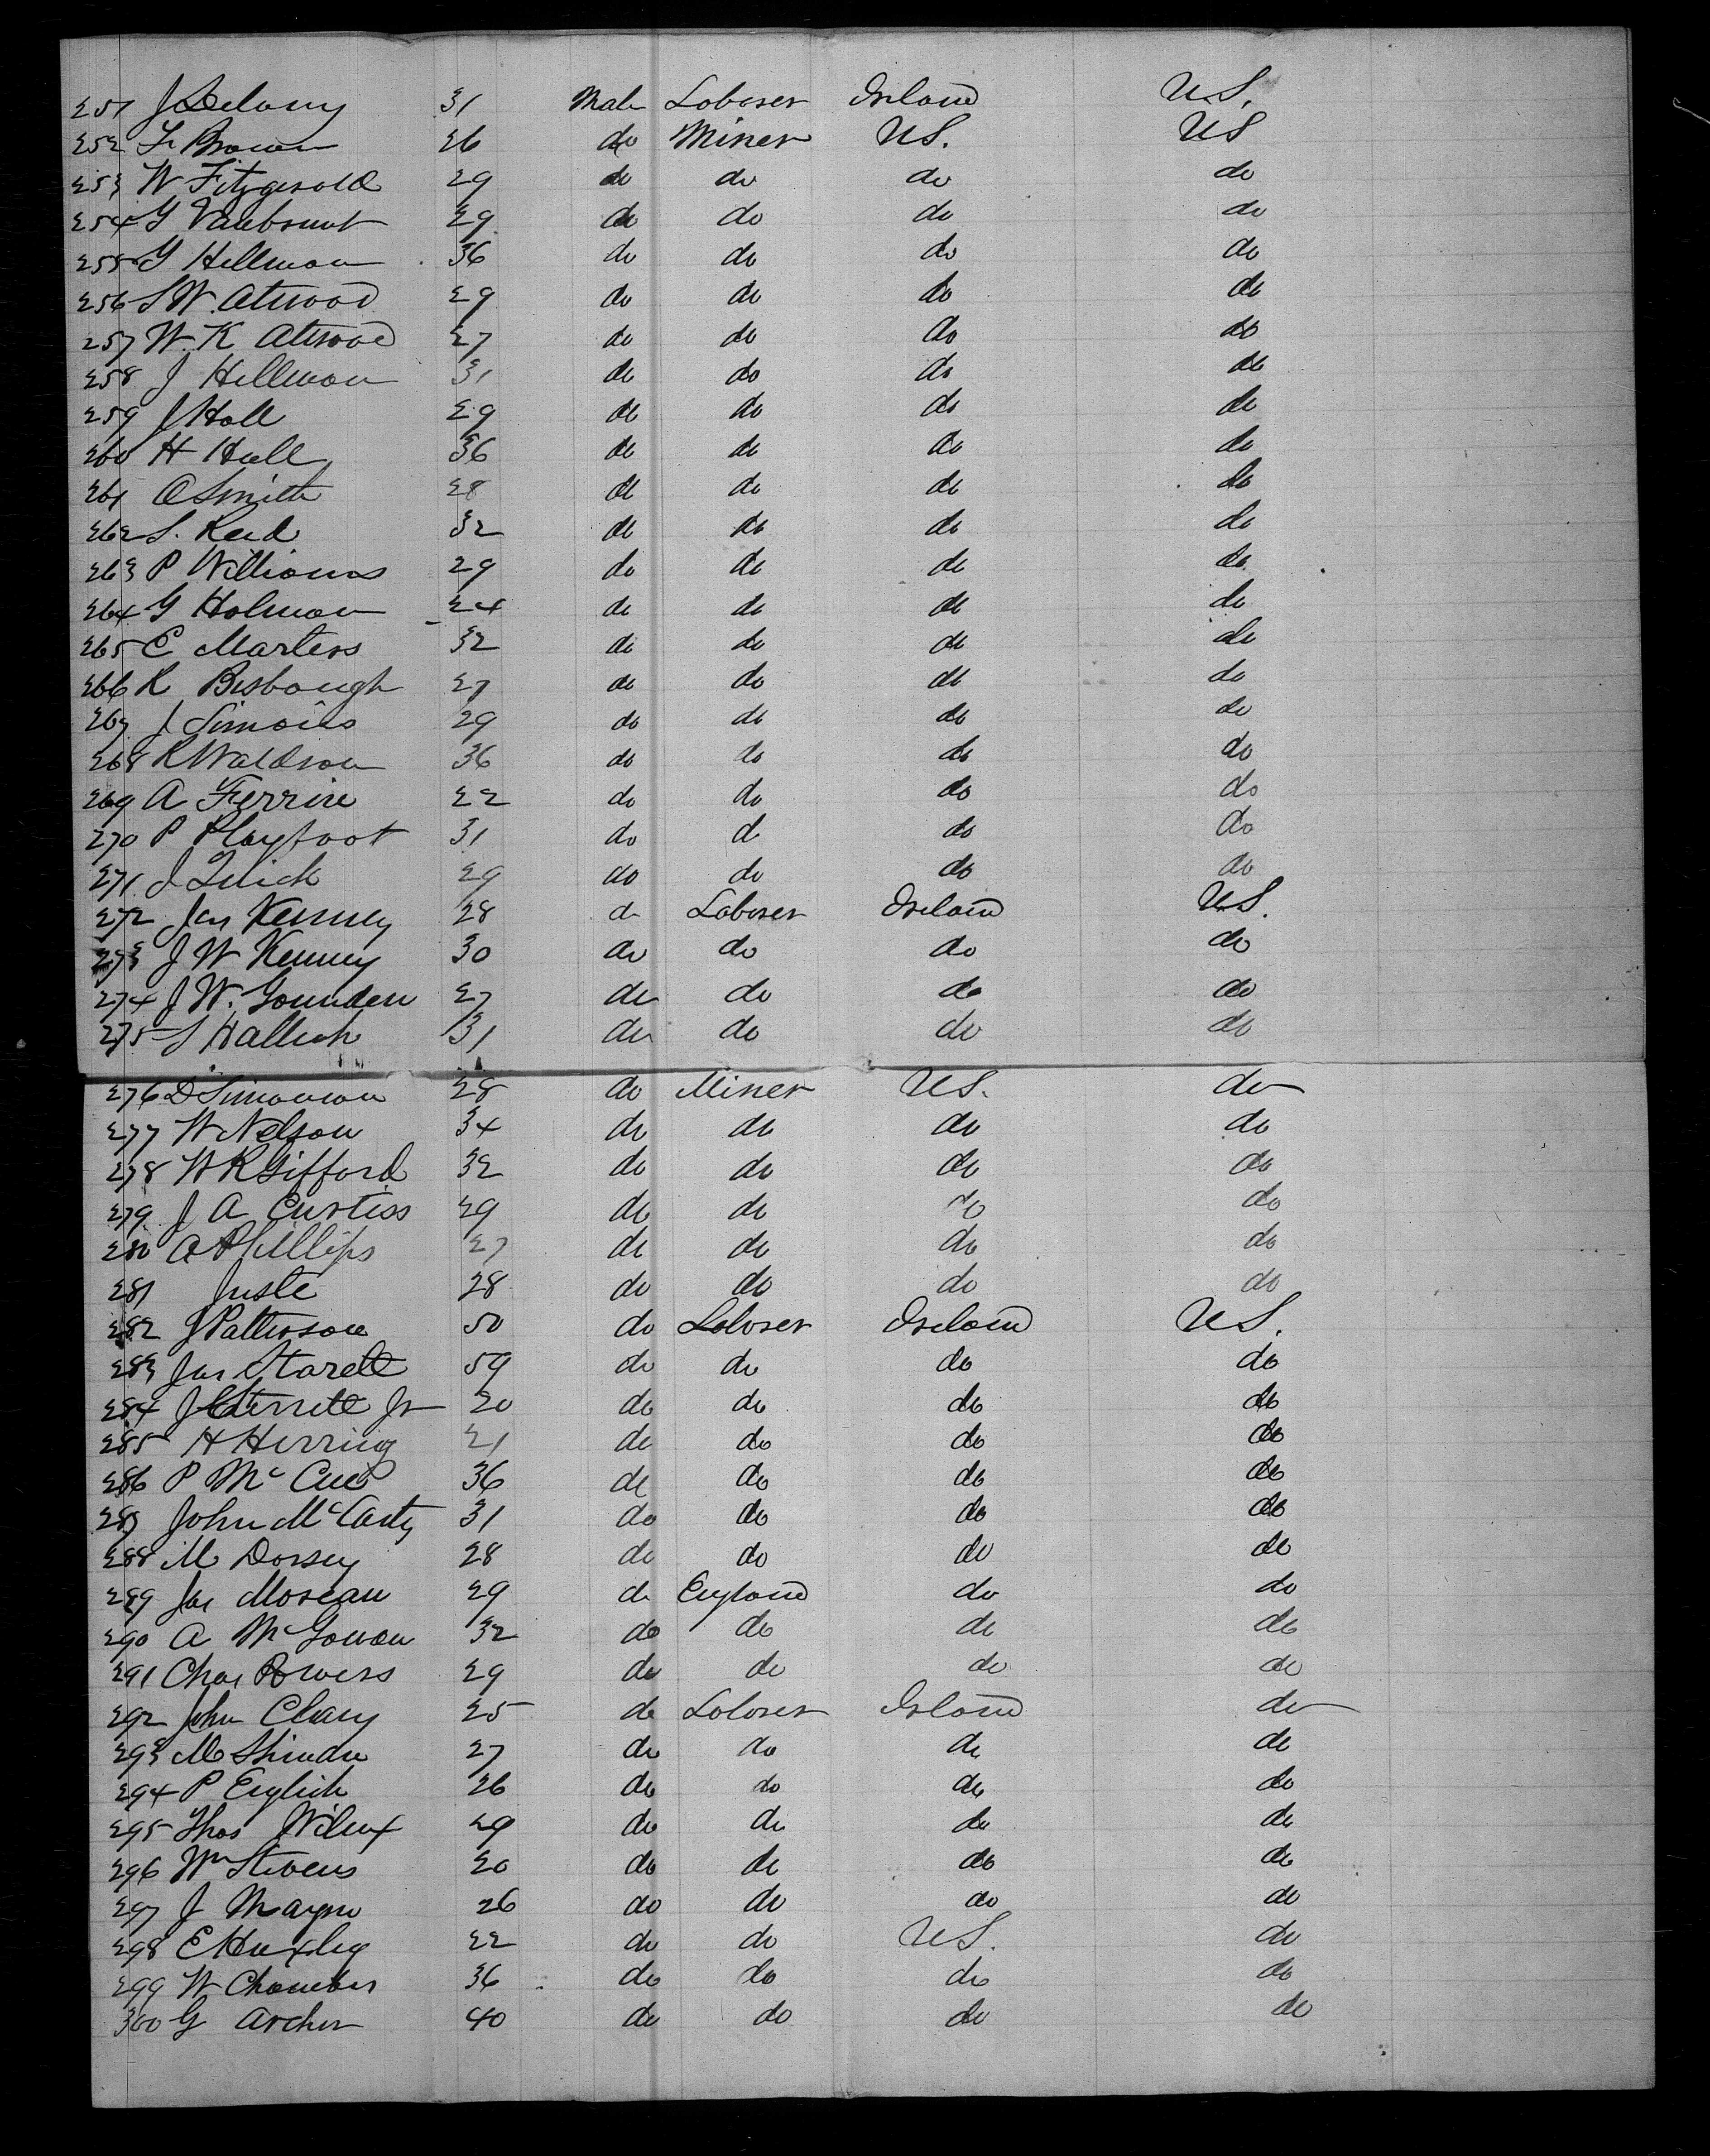 251 J Delany 31 Male Laborer Ireland U.S.
252 Fr Brown 26 do Miner US. US
253 W Fitzgerald 29 do do do do
254 G Vanbrunt 29 do do do do
255 G Hillman 36 do do do do
256 S W. Atwood 29 do do do do
257 W. K Atwood 27 do do do do
258 J Hillman 31 do do do do
259 J Hall 29 do do do do
260 H Hall 36 do do do do
261 O Smith 28 do do do do
262 S. Reed 32 do do do do
263 P Williams 29 do do do do
264 G Holman 24 do do do do
265 C Marters 32 do do do do
266 R Besbough 27 do do do do
267 J Simons 29 do do do do
268 R Waldron 36 do do do do
269 A Ferrire 22 do do do do
270 P Playfoot 31 do d do do
271 J Quick 29 do do do do
272 Jas Kenney 28 do Laborer Ireland US.
273 J W Kenney 30 do do do do
274 J W. Gounden 27 do do do do
275 S Hallech 31 do do do do
276 D Simonson 28 do Miner US. do
277 W Nelson 34 do do do do
278 W R Gifford 32 do do do do
279 J A Curtiss 29 do do do do
280 A Phillips 27 do do do do
281 Juste 28 do do do do
282 J Patterson 50 do Laborer Ireland US.
283 Jas Starett 59 do do do do
284 J Sterrett Jr 20 do do do do
285 H Herring 21 do do do do
286 P McCue 36 do do do do
287 John McCarty 31 do do do do
288 M Dorsey 28 do do do do
289 Jas Morean 29 do England do do
290 A McGowan 32 do do do do
291 Chas Powers 29 do do do do
292 John Cleary 25 do Laborer Ireland do
293 M Shindu 27 do do do do
294 P English 26 do do do do
295 Thos Wilcox 29 do do do do
296 Wm Stevens 20 do do do do
297 J Mayne 26 do do do do
298 E Huxley 22 do do US. do
299 W Chamber 36 do do do do
300 G Archer 40 do do do do